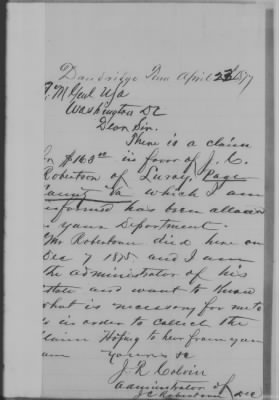 Dandridge Tenn April 23d 1877
Q. M Genl USA
Washington DC
Dear Sir.
There is a claim
for $160.00 in favor of J. C.
Robertson of Luray, Page
County Va which I am
informed has been allowed
in your Department.
Mr Robertson died here on
Dec 7 1875 and I am
the administrator of his
state and want to know
what is necessary for me to
do in order to collect the
claim Hoping to hear from you
am yours &c
J. R. Colvin
administrator of
J C Robertson Dec